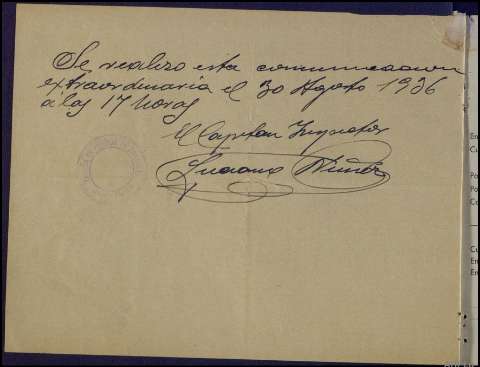 Se realizo esta comunicacion
extraordinaria el 30 Agosto 1936
a las 17 horas
El Capitan Inspector
Luciano